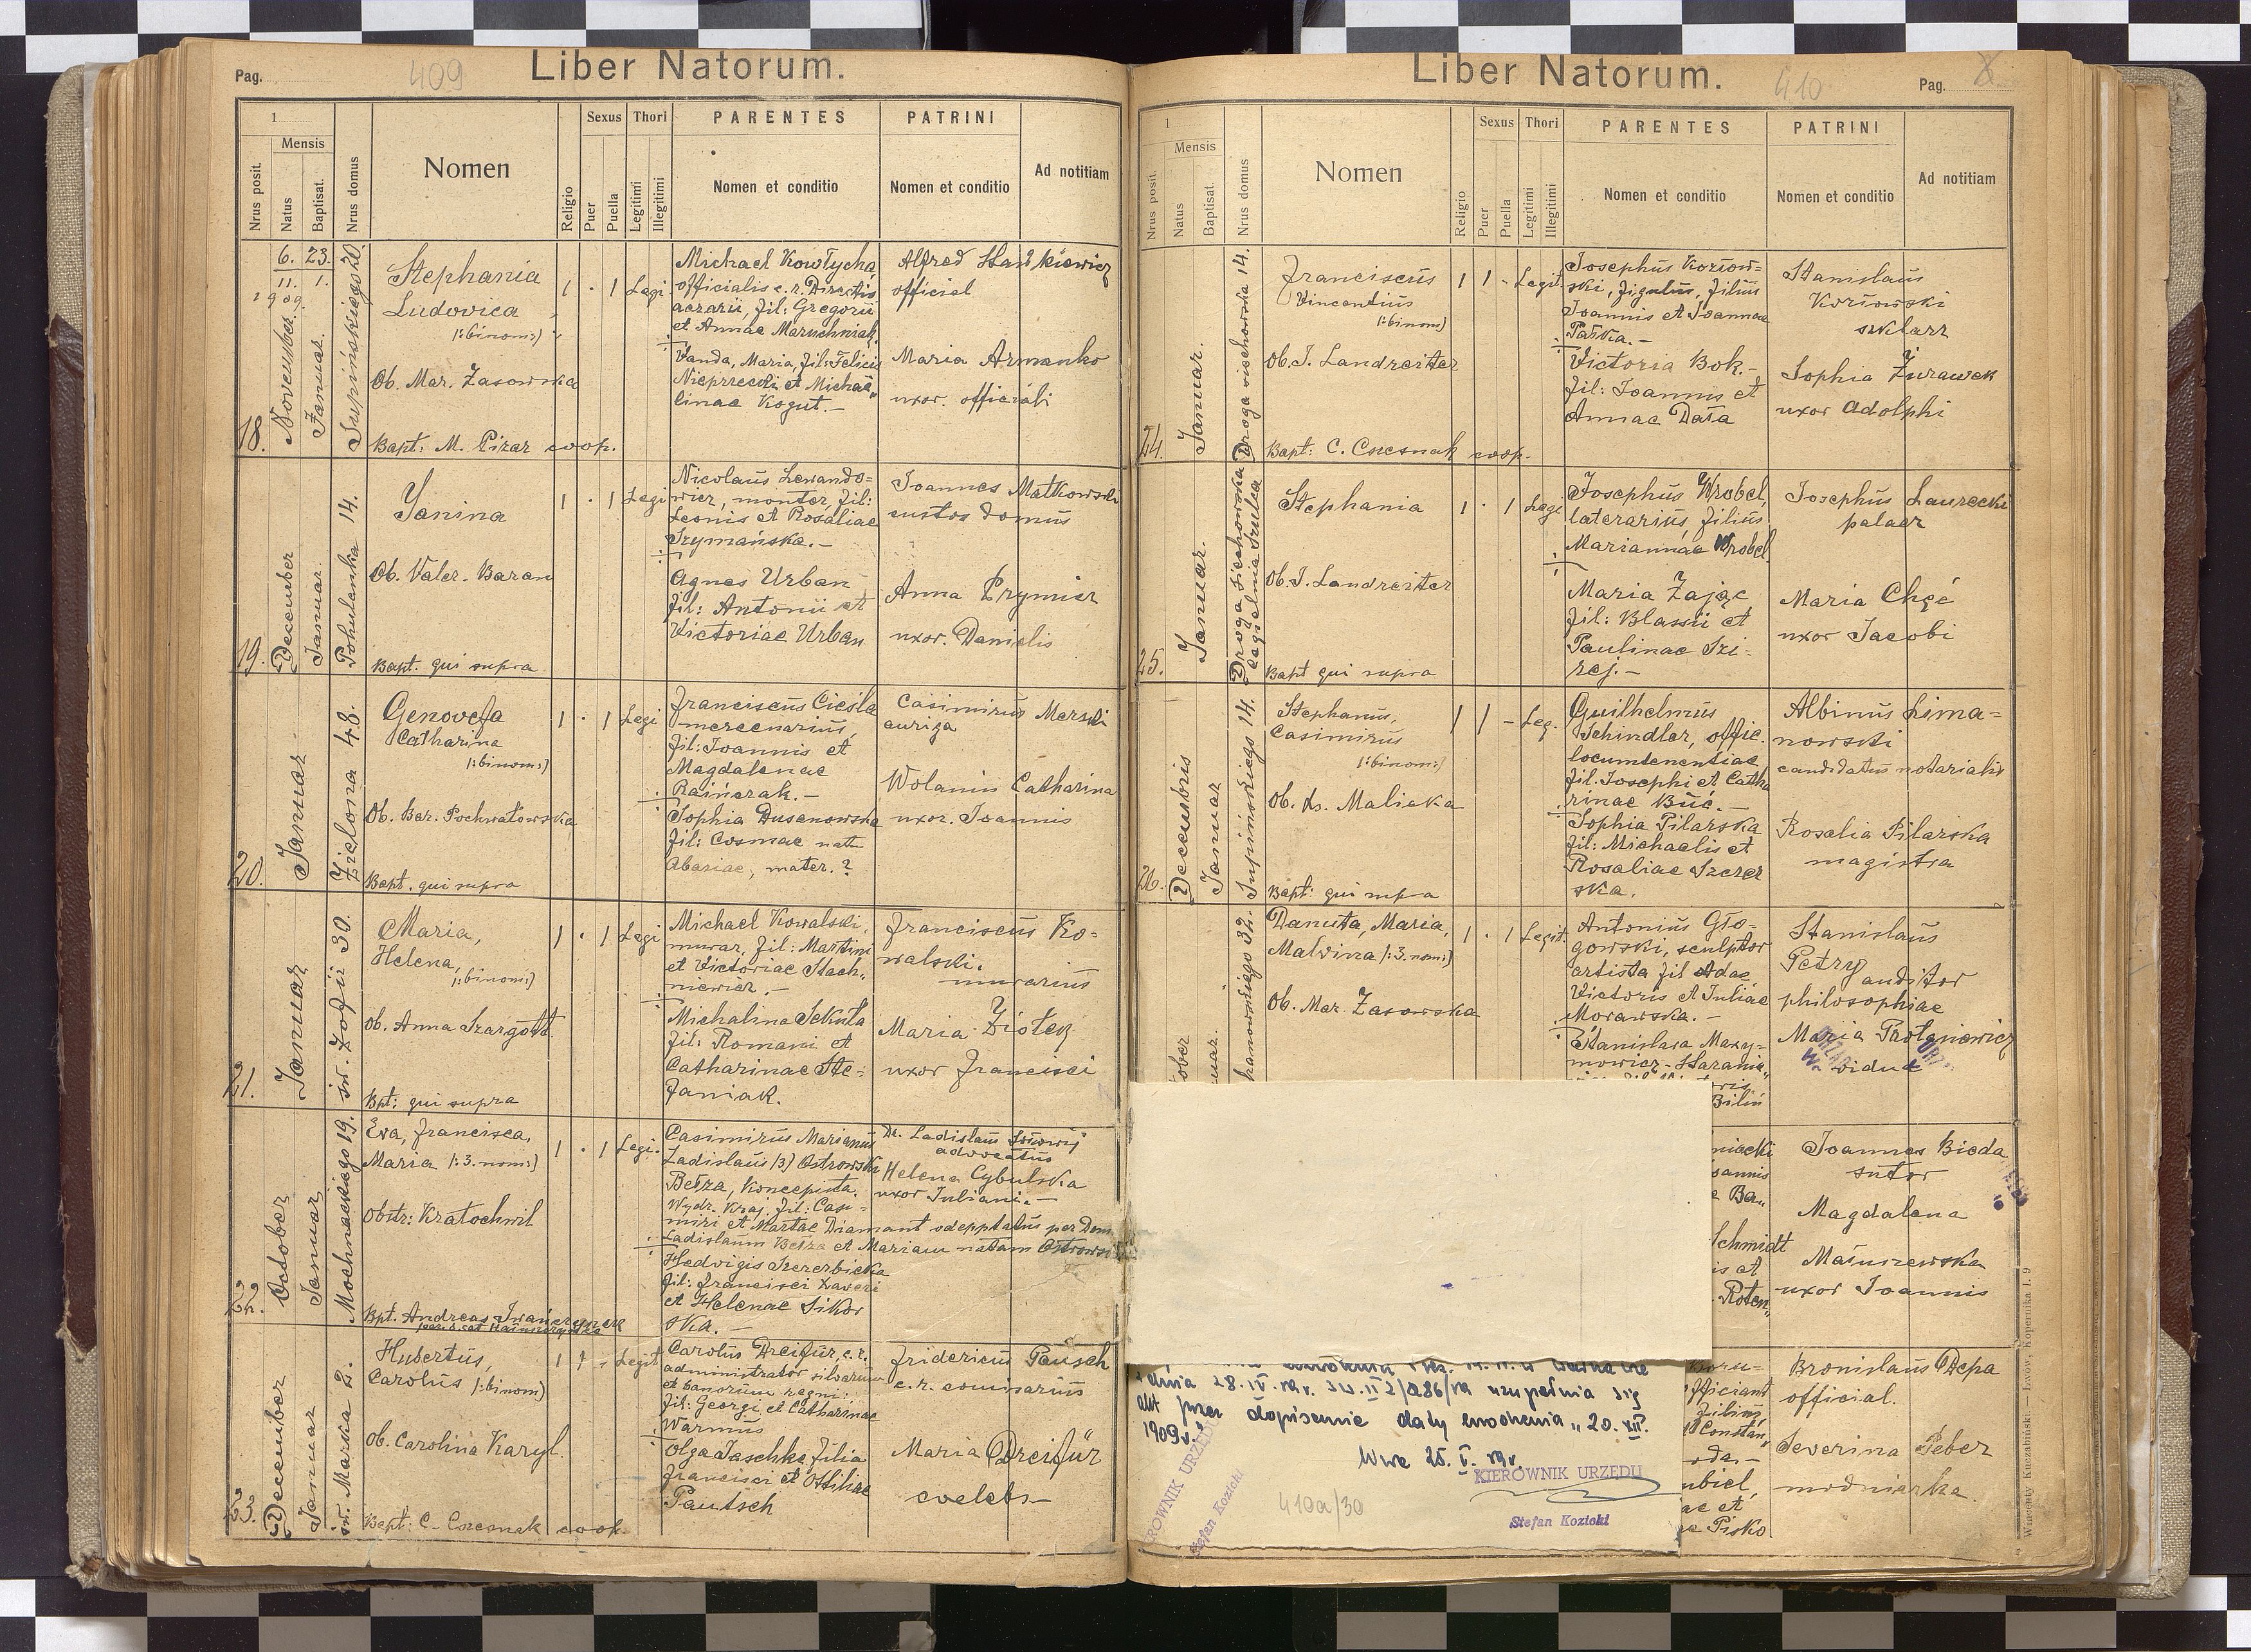 Pag.
409
Liber Natorum.
1
Mensis
Nrus posit.
Natus
Baptisat.
Nrus domus
Nomen
Religio
Sexus
Puer
Puella
Thori
Legitimi
Illegitimi
PARENTES
Nomen et conditio
PATRINI
Nomen et conditio
Ad notitiam
18.
6. 23.
11. 1.
1909.
November
Januar.
Supińskiego 20
Stephania
Ludovica
/:binom:/
Ob. Mar. Zasowska
Bapt: M. Pizar coop.
1 · 1 Legi
Michael Kowłycha
officialis c. r. Directis
aerarii, fil: Gregorii
et Annae Maruchniak.
Vanda, Maria, fil: Felicis
Nieprzecki et Michae„
linae Kogut.–
Alfred Stankiewicz
official
Maria Armanko
uxor. officiali
19.
December
Januar.
Pohulanka 14.
Janina
Ob. Valer. Baran
Bapt. qui supra
1 · 1 Legi
Nicolaus Lewando=
wicz, monter, fil:
Leonis et Rosaliae
Szymańska.–
Agnes Urban
fil: Antonii et
Victoriae Urban
Joannes Matkowski
custos domus
Anna Prymicz
uxor. Danielis
20.
Januar
Zielona 48.
Genovefa
Catharina
/:binom:/
Ob. Bar. Pochwatowska
Bapt. qui supra
1 · 1 Legi
Franciscus Cieśla
mercenarius,
fil: Joannis et
Magdalenae
Raińczak.–
Sophia Dusanowska
fil: Cosmae nat
Abasiae, mater.?
Casimirus Merski
auriga
Wolanin Catharina
uxor. Joannis
21.
Januar
św. Zofii 30.
Maria,
Helena,
/:binom:/
Ob. Anna Szargott.
Bpt: qui supra
1 · 1 Legi
Michael Kowalski,
murar, fil: Martini
et Victoriae Stach„
niewicz.–
Michalina Sekuta
fil: Romani et
Catharinae Ste=
faniak.
Franciscus Ko=
walski.
murarius
Maria Ziołek
uxor Francisci
22.
October
Januar
Mochnackiego 19.
Eva, Francisca,
Maria /:3. nom:/
Obstr: Kratochwil
Bpt. Andreas Iwańczyszek
1 · 1 Legi.
Casimirus Marianus
Ladislaus /3/ Ostrowski
Bełza, koncepista
Wydz. Kraj. fil: Casi=
miri et Martae Diamant adopptatus per Dom.
Ladislaum Bełza et Mariam natam Ostrowsk
Hedvigis Szczerbicka
fil: Francisci Xaveri
et Helenae Sikor
ska.–
Dr. Ladislaus
advocatus
Helena Cybulska
uxor Juliani.–
23.
December
Januar
św. Marka 2.
Hubertus,
Carolus /:binom/
Ob. Carolina Karyl.
Bapt: C. Czesnak coop.
1 1 - Legit
Carolus Dreifür, c. r.
administrator silvarum
et bonorum regni:
fil: Georgi et Catharinae
Warmus
Olga Jaschke filia
Francisci et Ottiliae
Pautsch
Fridericus Pausch
c. r. comisarius
Maria Dreifür
coelebs–
Liber Natorum.
410
Pag.
1
Mensis
Nrus posit.
Natus
Baptisat.
Nrus domus
Nomen
Religio
Sexus
Puer
Puella
Thori
Legitimi
Illegitimi
PARENTES
Nomen et conditio
PATRINI
Nomen et conditio
Ad notitiam
24.
Januar.
Droga wichowska 14.
Franciscus
Vincentius
/:binom/
Ob. J. Landreiter
Bapt: C. Czesnak coop.
1 1 - Legit.
Josephus Koziow=
ski, figulus, filius
Joannis et Joannae
Paśka.–
Victoria Bok.–
fil: Joannis et
Annae Data
Stanislaus
Koziowski
szklarz
Sophia Żurawek
uxor Adolphi
25.
Januar.
Droga Sichowska
Cegielnia Szulca
Stephania
Ob. J. Landreiter
Bapt qui supra
1 · 1 Legi
Josephus Wrobel,
laterarius, filius
Mariannae Wrobel
Maria Zając
fil: Blasii et
Paulinae Szi-
rej.–
Josephus Laurecki
palacz
Maria Chęć
uxor Jacobi
26.
Decembris
Januar
Supińskiego 14.
Stephanus,
Casimirus
/:binom:/
Ob. Ls. Malicka
Bapt: qui supra
1 1 - Leg.
Guilhelmus
Schindler, offic.
locumtenentiae,
fil. Josephi et Catha
rinae Buć.–
Sophia Pilarska
fil: Michaelis et
Rosaliae Szczer
ska.
Albinus Lima=
nowski
candidatus notarialis
Rosalia Pilarska
magistra
ober
uar.
hanowskiego 32.
Danuta, Maria,
Malvina /:3. nom:/
Ob. Mar. Zasowska
1 · 1 Legit.
Antonius Gło-
gowski, sculptor
artista fil Adae
Victoris et Juliae
Morawska.–
Stanislava Maxy=
mowicz-Haranie„
Bilin
Stanislaus
Petry
auditor
philosophiae
Maria Prołaniewicz
vidua
niecki
oannis
e Ba„
Schmidt
is et
Roten„
Joannes Bieda
sutor
Magdalena
Matuszewska
uxor Joannis
Boru=
fficiant
filius
Constan„
oda.–
ubiel,
ae et
ae Pisko
Bronislaus Depa
official.
Severina Peber
modniarka.
dnia 28. IV. br. Sw. II 2/286/ uzupełnia się
akt przez dopisanie daty urodzenia „20. XII.
1909 r."
Lwów 25. V.
KIEROWNIK URZĘDU
Stefan Kozicki
KIEROWNIK URZĘDU
Stefan Kozicki
410a/30
Wincenty Kuczabiński — Lwów, Kopernika l. 9